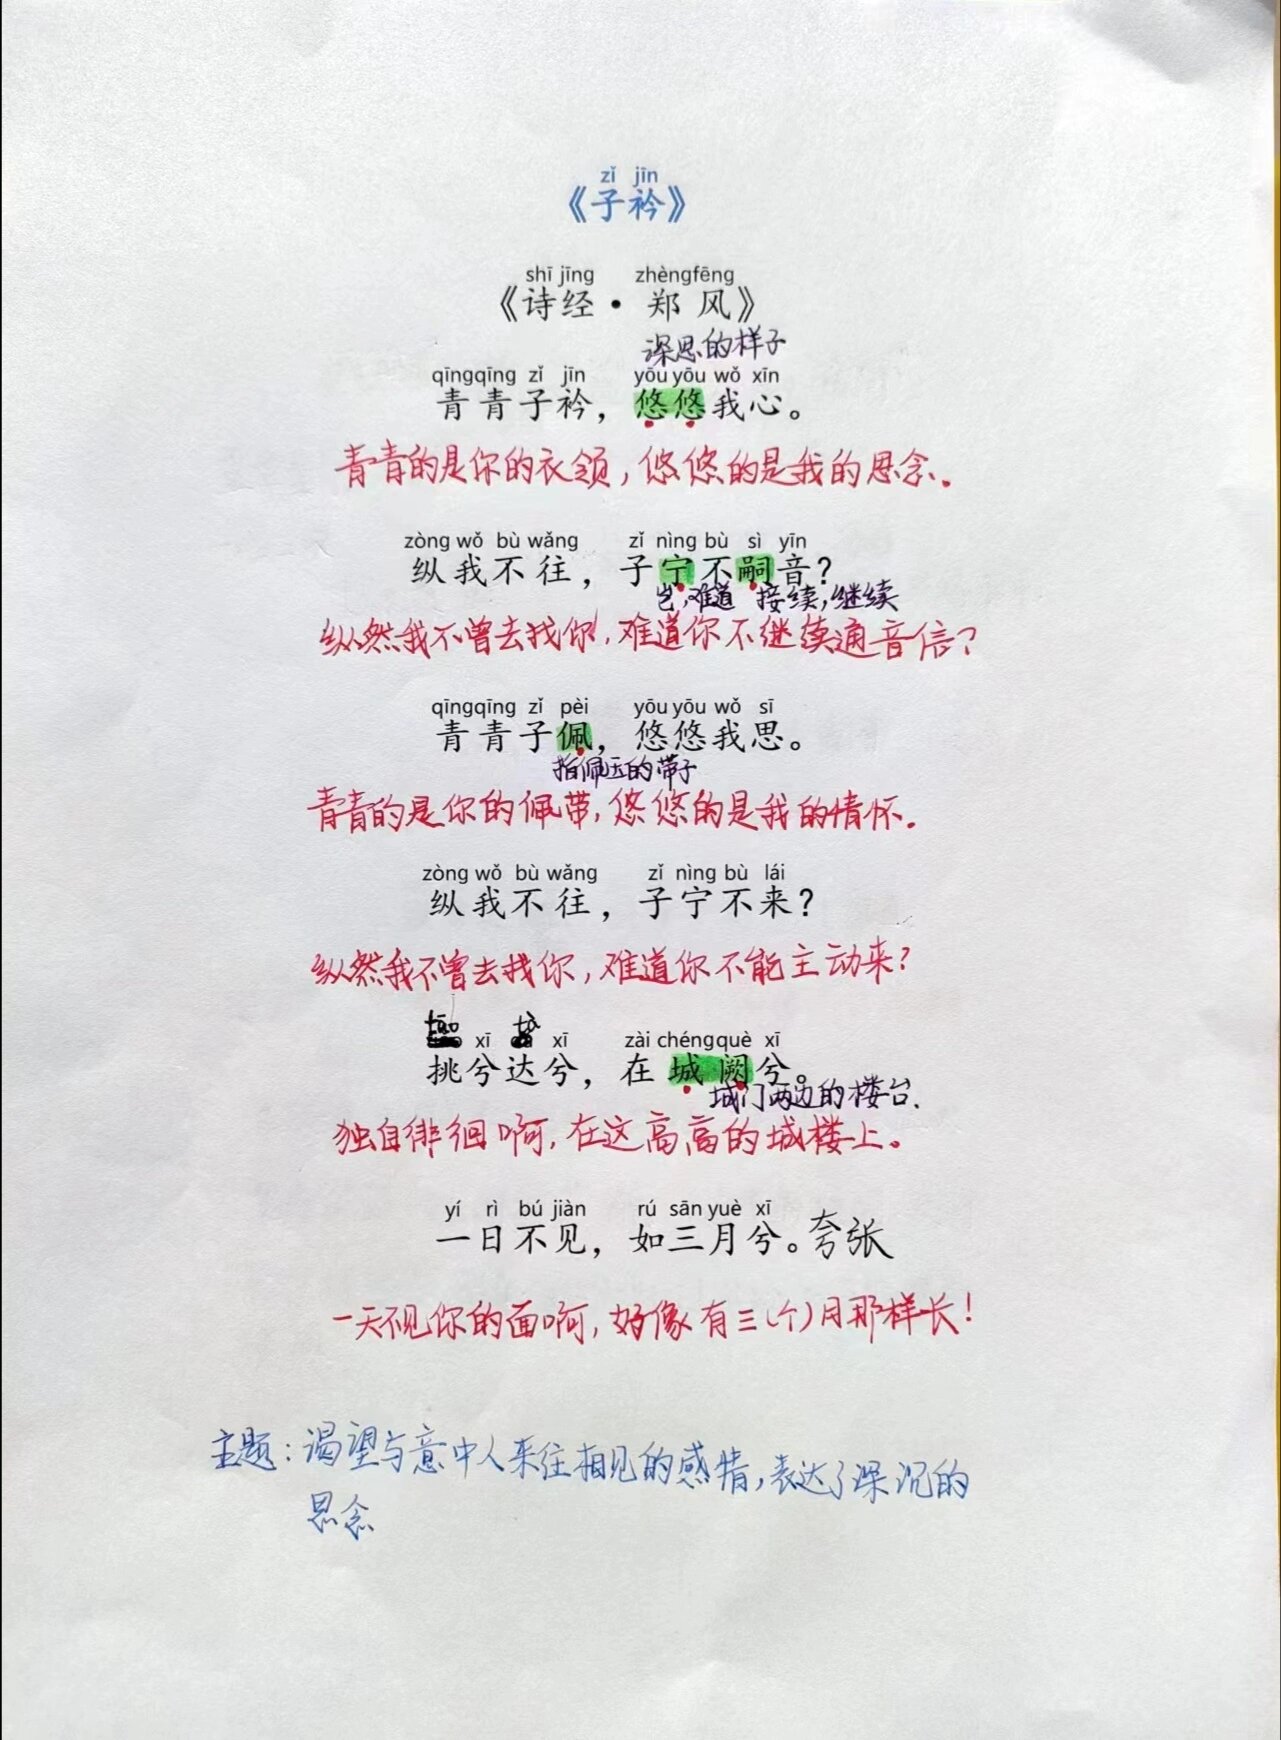 zǐ jīn
《子衿》
shī jīng zhèngfēng
《诗经·郑风》
深思的样子
qīngqīng zǐ jīn yōu yōu wǒ xīn
青青子衿，悠悠我心。
青青的是你的衣领，悠悠的是我的思念.
zòng wǒ bù wǎng zǐ nìng bù sì yīn
纵我不往，子宁不嗣音？
岂，难道 接续，继续
纵然我不曾去找你，难道你不继续通音信？
qīngqīng zǐ pèi yōu yōu wǒ sī
青青子佩，悠悠我思。
指佩玉的带子
青青的是你的佩带，悠悠的是我的情怀.
zòng wǒ bù wǎng zǐ nìng bù lái
纵我不往，子宁不来？
纵然我不曾去找你，难道你不能主动来？
tāo tà
xī xī zài chéngquè xī
挑兮达兮，在城阙兮。
城门两边的楼台.
独自徘徊啊，在这高高的城楼上。
yí rì bú jiàn rú sān yuè xī
一日不见，如三月兮。夸张
一天不见你的面啊，好像有三(个)月那样长！
主题：渴望与意中人来往相见的感情，表达了深沉的
思念